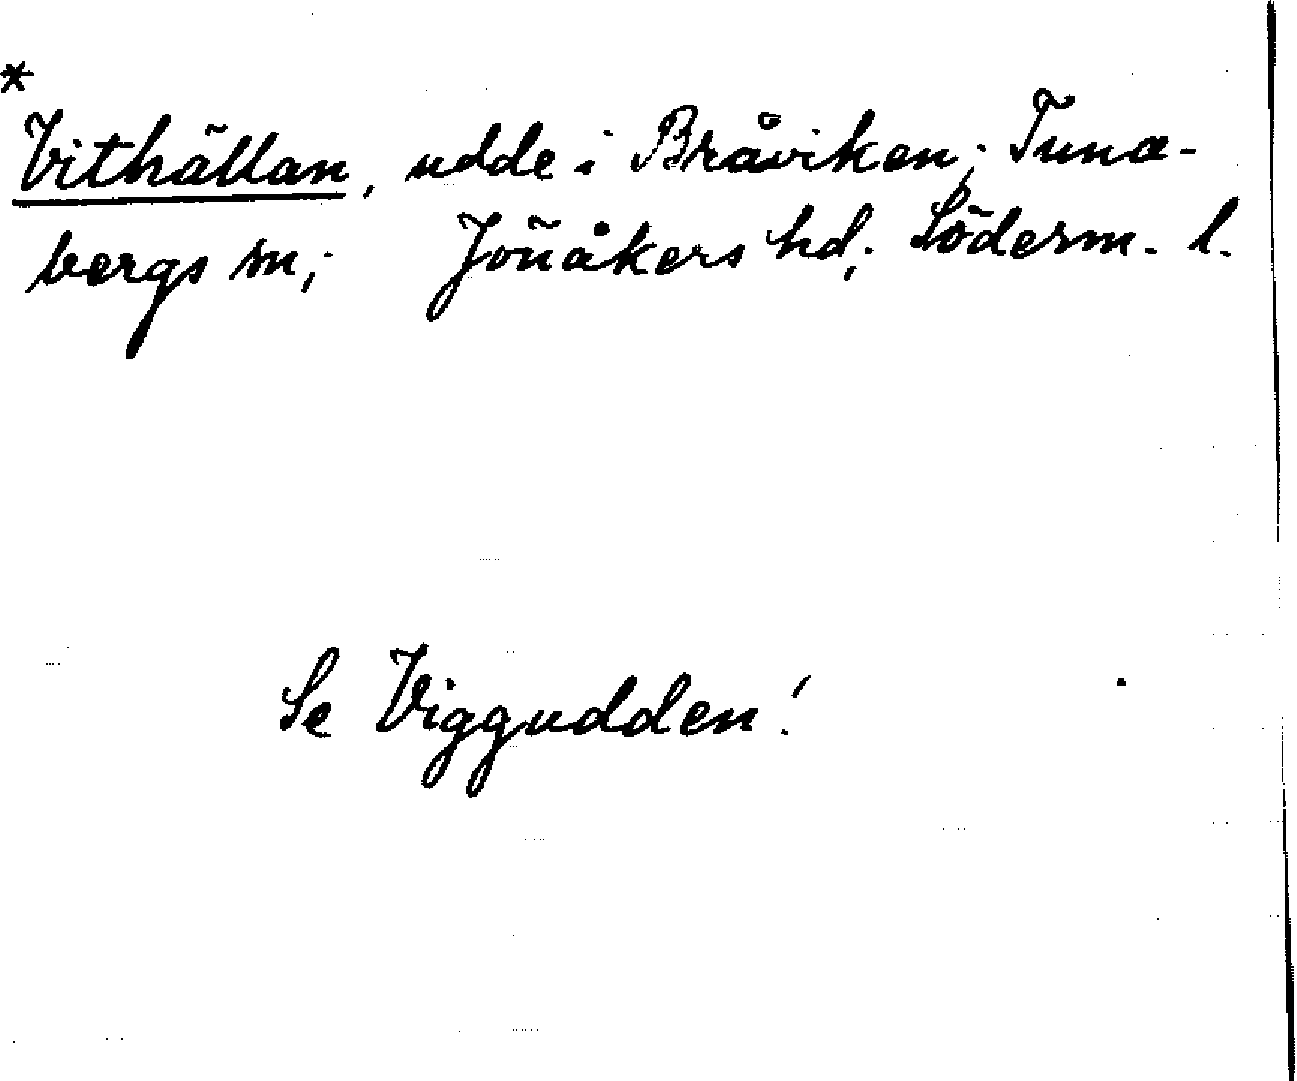 *
Vithällan, udde i Bråviken; Tuna-
bergs sn; Jönåkers hd; Söderm. l.
Se Viggudden!